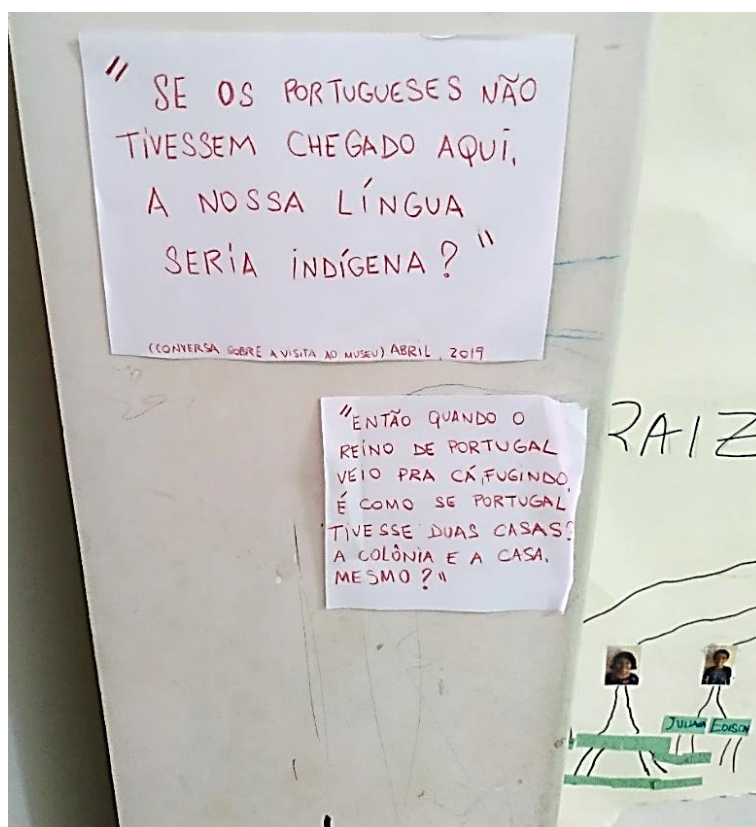 " SE OS PORTUGUESES NÃO
TIVESSEM CHEGADO AQUI,
A NOSSA LÍNGUA
SERIA INDÍGENA? "
(CONVERSA SOBRE A VISITA AO MUSEU) ABRIL, 2019
"ENTÃO QUANDO O
REINO DE PORTUGAL
VEIO PRA CÁ, FUGINDO,
É COMO SE PORTUGAL
TIVESSE DUAS CASAS?
A COLÔNIA E A CASA.
MESMO? "
RAIZ
JULIANA EDISON